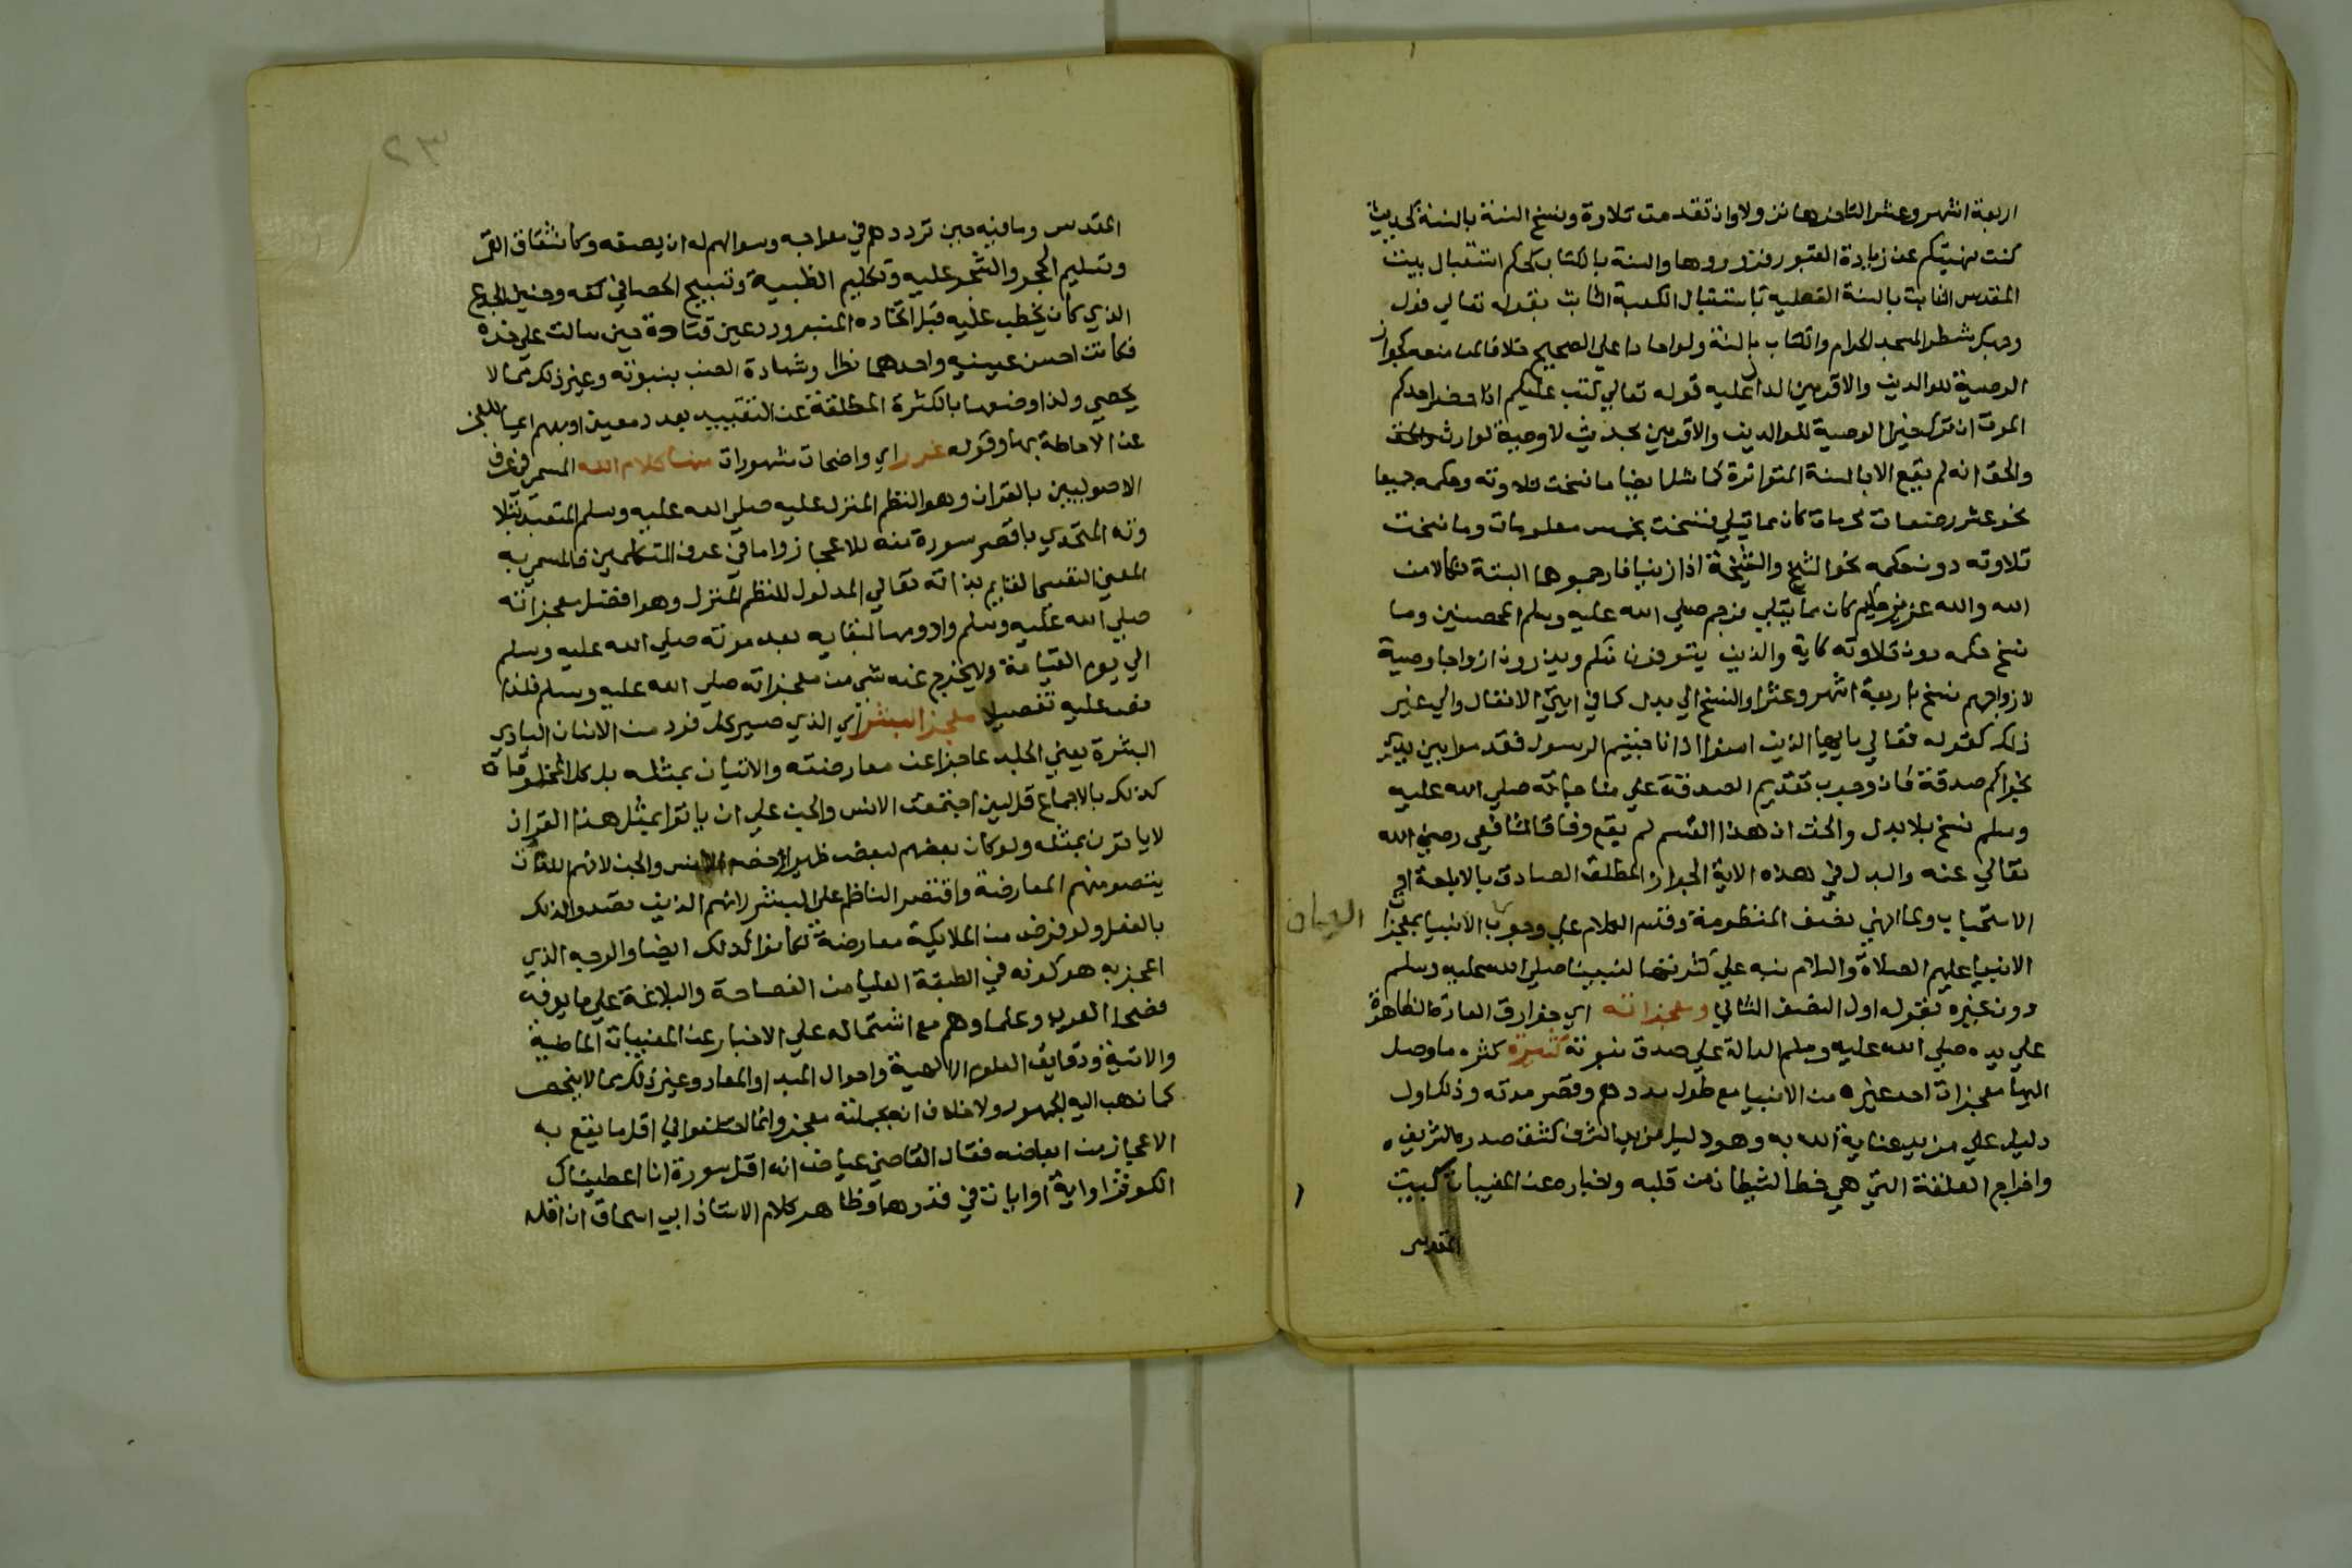 اربعة اشهر وعشرا لتاخرها نزولا وان تقدمت تلاوة ونسخ السنة بالسنة كحديث
كنت نهيتكم عن زيارة القبور فزوروها والسنة بالكتاب كحكم استقبال بيت
المقدس الثابت بالسنة الفعلية باستقبال الكعبة الثابت بقوله تعالي فول
وجهك شطر المسجد الحرام والكتاب بالسنة ولو احادا علي الصحيح خلافا لمن منعه كجواز
الوصية للوالدين والاقربين الدال عليه قوله تعالي كتب عليكم اذا حضر احدكم
الموت ان ترك خيرا الوصية للوالدين والاقربين بحديث لا وصية لوارث
والحق انه لم يقع الا بالسنة المتواترة كما شمل ايضا ما نسخت تلاوته وحكمه جميعا
نحو عشر رضعات محرمات كان مما يتلي فنسخت بخمس معلومات وما نسخت
تلاوته دون حكمه نحو الشيخ والشيخة اذا زنيا فارجموهما البتة نكالا من
الله والله عزيز حكيم كان مما يتلي فرجم صلي الله عليه وسلم المحصنين وما
نسخ حكمه دون تلاوته كاية والذين يتوفون منكم ويذرون ازواجا وصية
لازواجهم نسخ باربعة اشهر وعشرا والنسخ الي بدل كما في ايتي الانفال والي غير
ذلك كقوله تعالي يا ايها الذين امنوا اذا ناجيتم الرسول فقدموا بين يدي
نجواكم صدقة فان وجوب تقديم الصدقة علي مناجاته صلي الله عليه
وسلم نسخ بلا بدل والحق ان هذا القسم لم يقع وفاقا للشافعي رضي الله
تعالي عنه والبدل في هذه الاية الجواز المطلق الصادق بالاباحة او
الاستحباب ولما انهي نصف المنظومة وقسم الكلام علي وجوب الايمان بمعجزا
الانبيا عليهم الصلاة والسلام نبه علي كثرتها لنبينا صلي الله عليه وسلم
دون غيره بقوله اول النصف الثاني ومعجزاته اي خوارق العادة الظاهرة
علي يده صلي الله عليه وسلم الدالة علي صدق نبوته كثيرة كثرة ما وصل
اليها معجزات احد غيره من الانبيا مع طول مددهم وقصر مدته وذلك اول
دليل علي مزيد عناية الله به وهو دليل مزيد الشرف كشق صدره الشريف
واخراج العلقة التي هي حظ الشيطان من قلبه واخباره عن المغيبات كبيت
المقدس
٢٣
المقدس وما فيه حين ترددهم في معراجه وسوالهم له ان يصفه وكانشقاق القمر
وتسليم الحجر والشجر عليه وتكليم الظبية وتسبيح الحصا في كفه وحنين الجذع
الذي كان يخطب عليه قبل اتخاذه المنبر ورد عين قتادة حين سالت علي خده
فكانت احسن عينيه واحدهما نظرا وشهادة الضب بنبوته وغير ذلك مما لا
يحصي ولذا وصفها بالكثرة المطلقة عن التقييد بعدد معين او مبهم ايما للعجز
عن الاحاطة بها وقوله غرر اي واضحات مشهورات منها كلام الله المسمي في عرف
الاصوليين بالقران وهو النظم المنزل عليه صلي الله عليه وسلم المتعبد بتلا
وته المتحدي باقصر سورة منه للاعجاز واما في عرف المتكلمين فالمسمي به
المعني النفسي القايم بذاته تعالي المدلول للنظم المنزل وهو افضل معجزاته
صلي الله عليه وسلم وادومها لبقايه بعد موته صلي الله عليه وسلم
الي يوم القيامة ولا يخرج عنه شي من معجزاته صلي الله عليه وسلم فلذا
نص عليه تفصيلا معجز البشر اي الذي صير كل فرد من الانسان البادي
البشرة يعني الجلد عاجزا عن معارضته والاتيان بمثله بل كل المخلوقات
كذلك بالاجماع قل لين اجتمعت الانس والجن علي ان ياتوا بمثل هذا القران
لا ياتون بمثله ولو كان بعضهم لبعض ظهيرا خص الانس والجن لانهم اللذان
يتصور منهم المعارضة واقتصر الناظم علي البشر لانهم الذين تصدوا لذلك
بالفعل ولو فرض من الملايكة معارضة لكانوا كذلك ايضا والوجه الذي
اعجز به هو كونه في الطبقة العليا من الفصاحة والبلاغة علي ما يعرفه
فصحا العرب وعلماوهم مع اشتماله علي الاخبار عن المغيبات الماضية
والاتية ودقايق العلوم الالهية واحوال المبدا والمعاد وغير ذلك مما لا ينحصر
كما ذهب اليه الجمهور ولا خلاف انه بجملته معجز وانما اختلفوا في اقل ما يقع به
الاعجاز من ابعاضه فقال القاضي عياض انه اقل سورة انا اعطيناك
الكوثر او اية او ايات في قدرها وظاهر كلام الاستاذ ابي اسحاق ان اقله